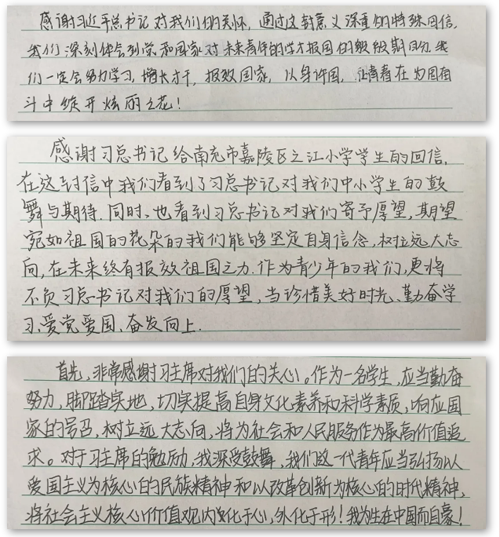 感谢习近平总书记对我们的关怀，通过这封意义深重的特殊回信，
我们深刻体会到党和国家对未来青年的学才报国的殷殷期盼。我
们一定会努力学习，增长才干，报效国家，以身许国，让青春在为国奋
斗中绽开炫丽之花！
感谢习总书记给南充市嘉陵区之江小学学生的回信，
在这封信中我们看到了习总书记对我们中小学生的鼓
舞与期待，同时，也看到习总书记对我们寄予厚望，期望
宛如祖国的花朵的我们能够坚定自身信念，树立远大志
向，在未来终有报效祖国之力，作为青少年的我们，更将
不负习总书记对我们的厚望，当珍惜美好时光、勤奋学
习、爱党爱国、奋发向上.
首先，非常感谢习主席对我们的关心。作为一名学生，应当勤奋
努力，脚踏实地，切实提高自身文化素养和科学素质，响应国
家的号召，树立远大志向，将为社会和人民服务作为最高价值追
求。对于习主席的勉励，我深受鼓舞，我们这一代青年应当弘扬以
爱国主义为核心的民族精神和以改革创新为核心的时代精神，
将社会主义核心价值观内化于心，外化于形！我为生在中国而自豪！